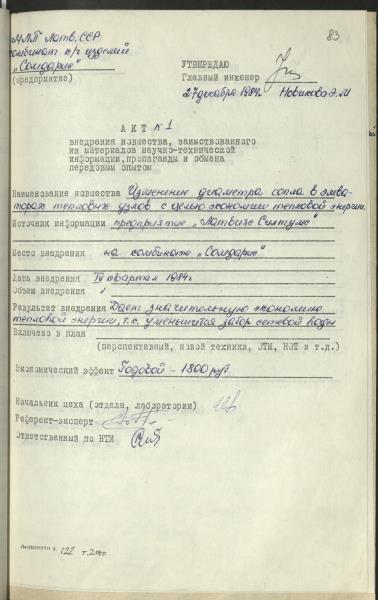 83
МЛП Латв. ССР
комбинат к/г изделий
„Сомдарис"
(предприятие)
УТВЕРЖДАЮ
Главный инженер
27 декабря 1984г. Новикова Э.М
А К Т №1
внедрения новшества, заимствованного
из материалов научно-технической
информации, пропаганды и обмена
передовым опытом
Наименование новшества Изменение диаметра сопла в элева-
торах тепловых узлов с целью экономии тепловой энергии.
Источник информации предприятие „Латвияс Силтумс"
Место внедрения на комбинате „Сомдарис"
Дата внедрения IV квартал 1984г
Объем внедрения
Результат внедрения Дает значительную экономию
тепловой энергии, т.к. уменьшится забор сетевой воды
Включено в план
(перспективный, новой техники, ОТМ, НОТ и т.д.)
Экономический эффект Годовой - 1800 руб.
Начальник цеха (отдела, лаборатории)
Референт-эксперт
Ответственный по НТИ
122 т.2000